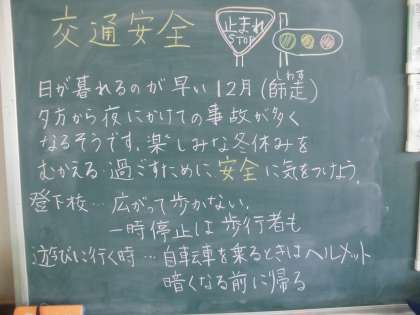 交通安全
止まれ
STOP
日が暮れるのが早い12月(師走)
しわす
夕方から夜にかけての事故が多く
なるそうです。楽しみな冬休みを
むかえる・過ごすために安全に気をつけよう。
登下校…広がって歩かない。
一時停止は歩行者も
遊びに行く時…自転車を乗るときはヘルメット
暗くなる前に帰る